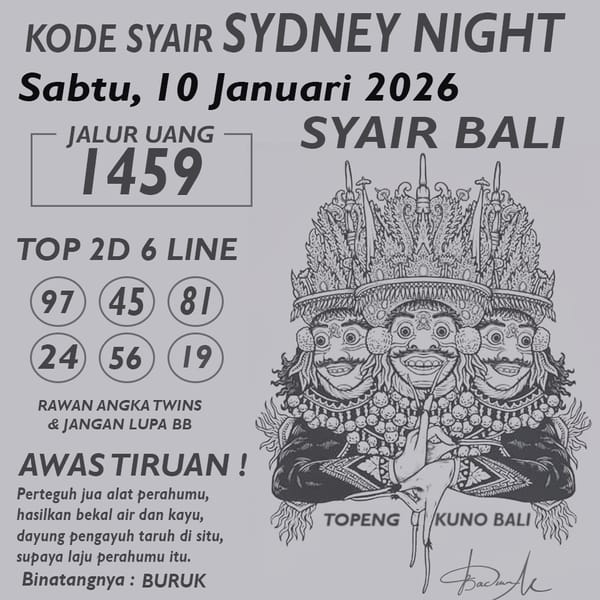 KODE SYAIR SYDNEY NIGHT
Sabtu, 10 Januari 2026
JALUR UANG
1459
SYAIR BALI
TOP 2D 6 LINE
97 45 81
24 56 19
RAWAN ANGKA TWINS
& JANGAN LUPA BB
AWAS TIRUAN !
Perteguh jua alat perahumu,
hasilkan bekal air dan kayu,
dayung pengayuh taruh di situ,
supaya laju perahumu itu.
Binatangnya : BURUK
TOPENG KUNO BALI